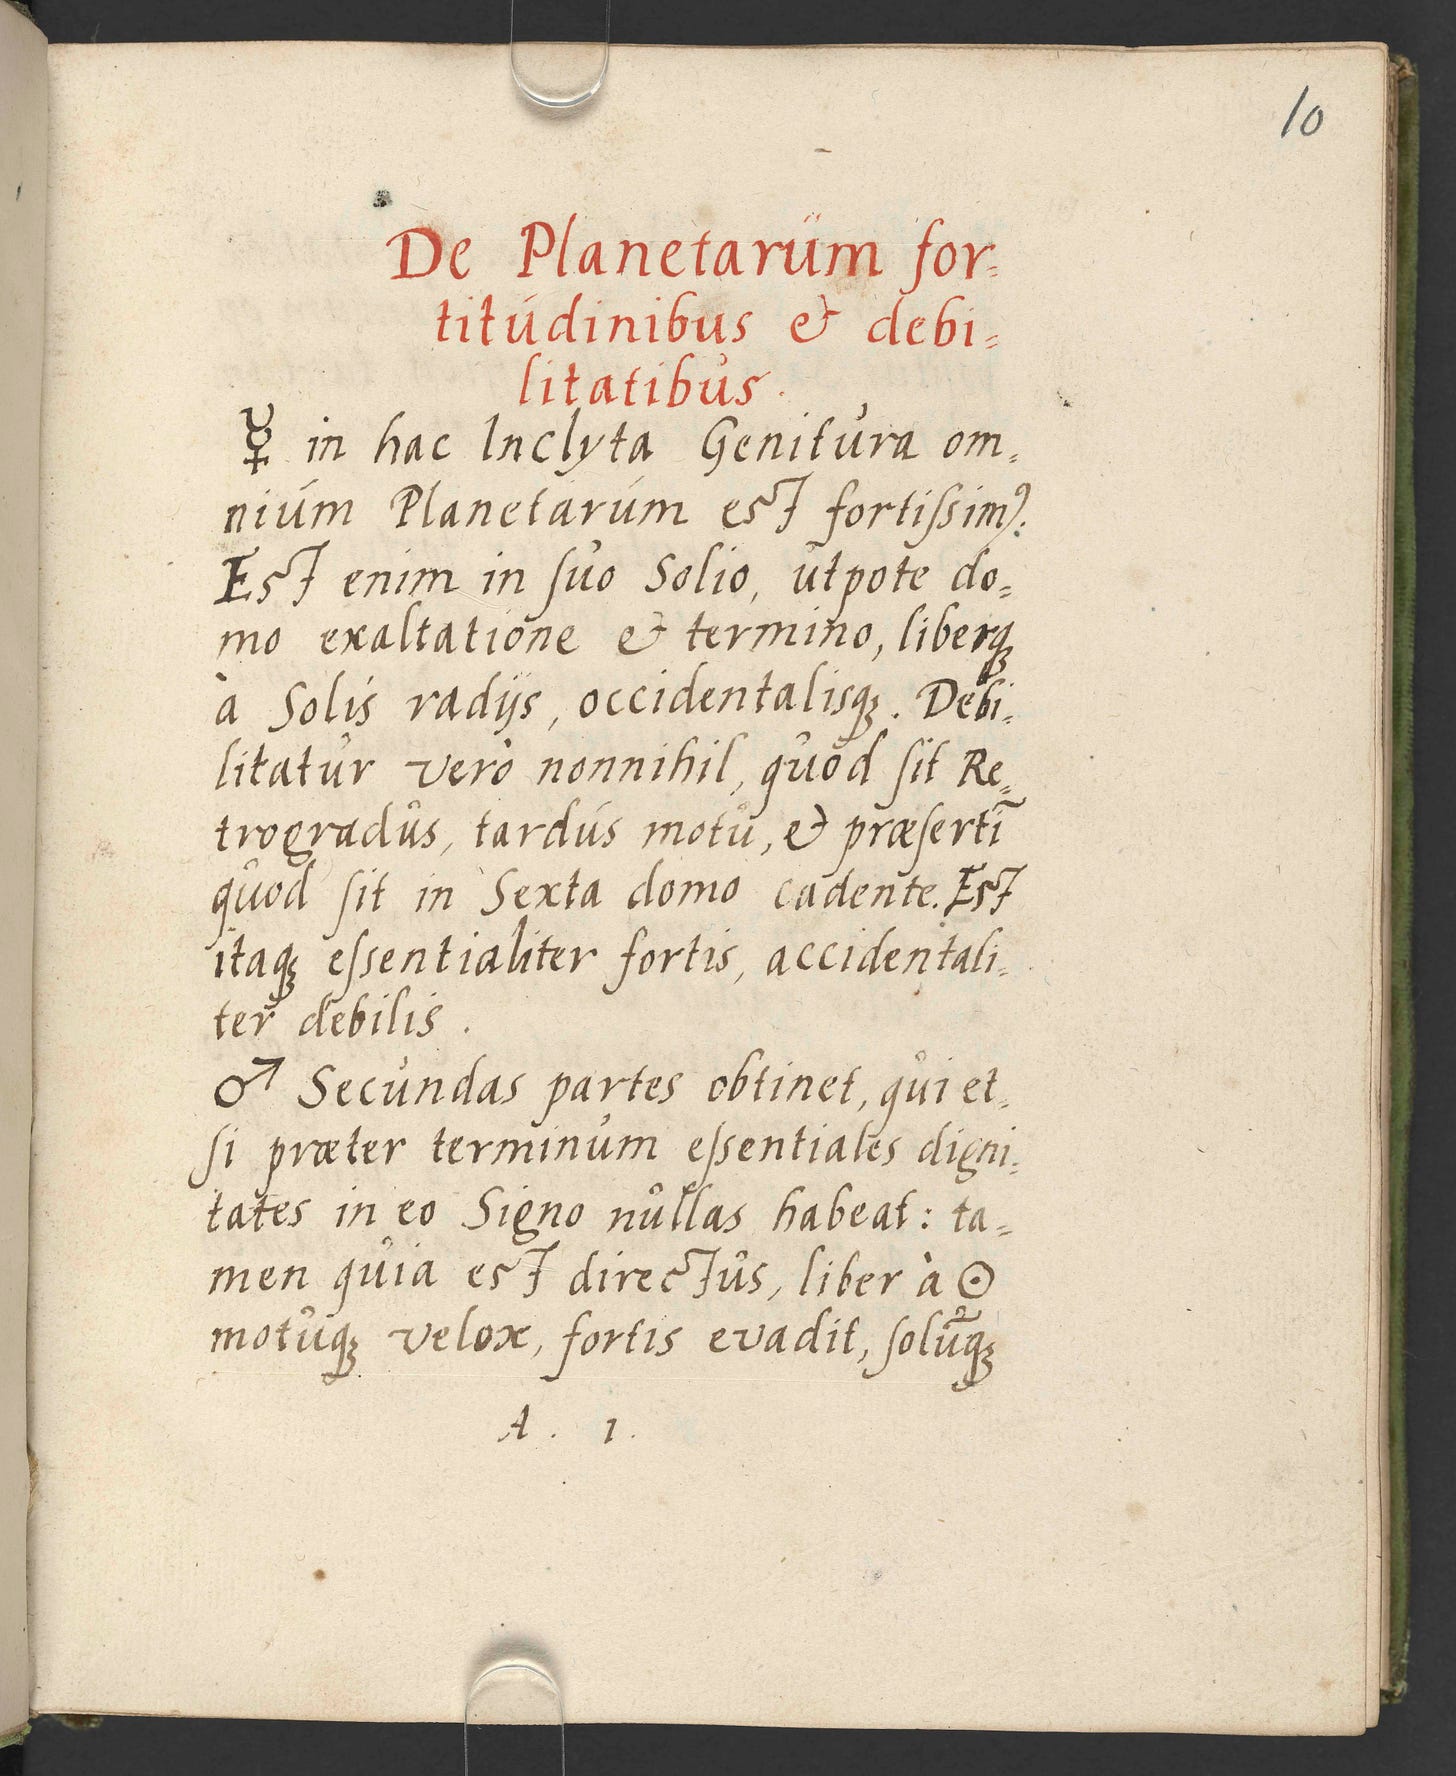 10
De Planetarum for=
titudinibus & debi=
litatibus.
☿ in hac Inclyta Genitura om=
nium Planetarum est fortiſsimꝰ.
Est enim in ſuo Solio, utpote do=
mo exaltatione & termino, liberqꝫ
à Solis radijs, occidentalisqꝫ. Debi=
litatur verò nonnihil, quòd ſit Re=
trogradus, tardus motu, & præſertī
quod ſit in Sexta domo cadente. Est
itaqꝫ eſsentialiter fortis, accidentali=
ter debilis.
♂ Secundas partes obtinet, qui et=
ſi præter terminum eſsentiales digni=
tates in eo Signo nullas habeat: ta=
men quia est directus, liber à ☉
motuqꝫ velox, fortis evadit, ſolūqꝫ
A. 1.